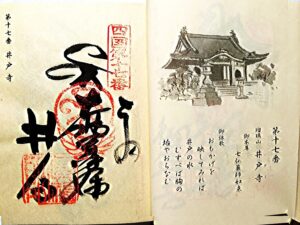 第十七番 井戸寺
四国第十七番
井戸寺
第十七番
瑠璃山 井戸寺
御本尊
七仏薬師如来
御詠歌
おもかげを
映してみれば
井戸の水
むすべば胸の
垢やおちなむ